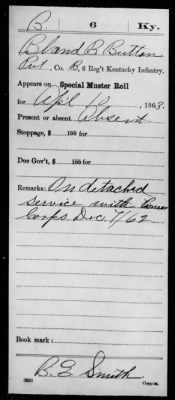 B 6 Ky.
Bland B Button
Pvt, Co. B, 6 Reg't Kentucky Infantry.
Appears on Special Muster Roll
for Apl 10, 1863.
Present or absent Absent
Stoppage, $ 100 for
Due Gov't, $ 100 for
Remarks: On detached
service with
Corps. Dec. 7/62
Book mark:
B. E. Smith
Copyist.